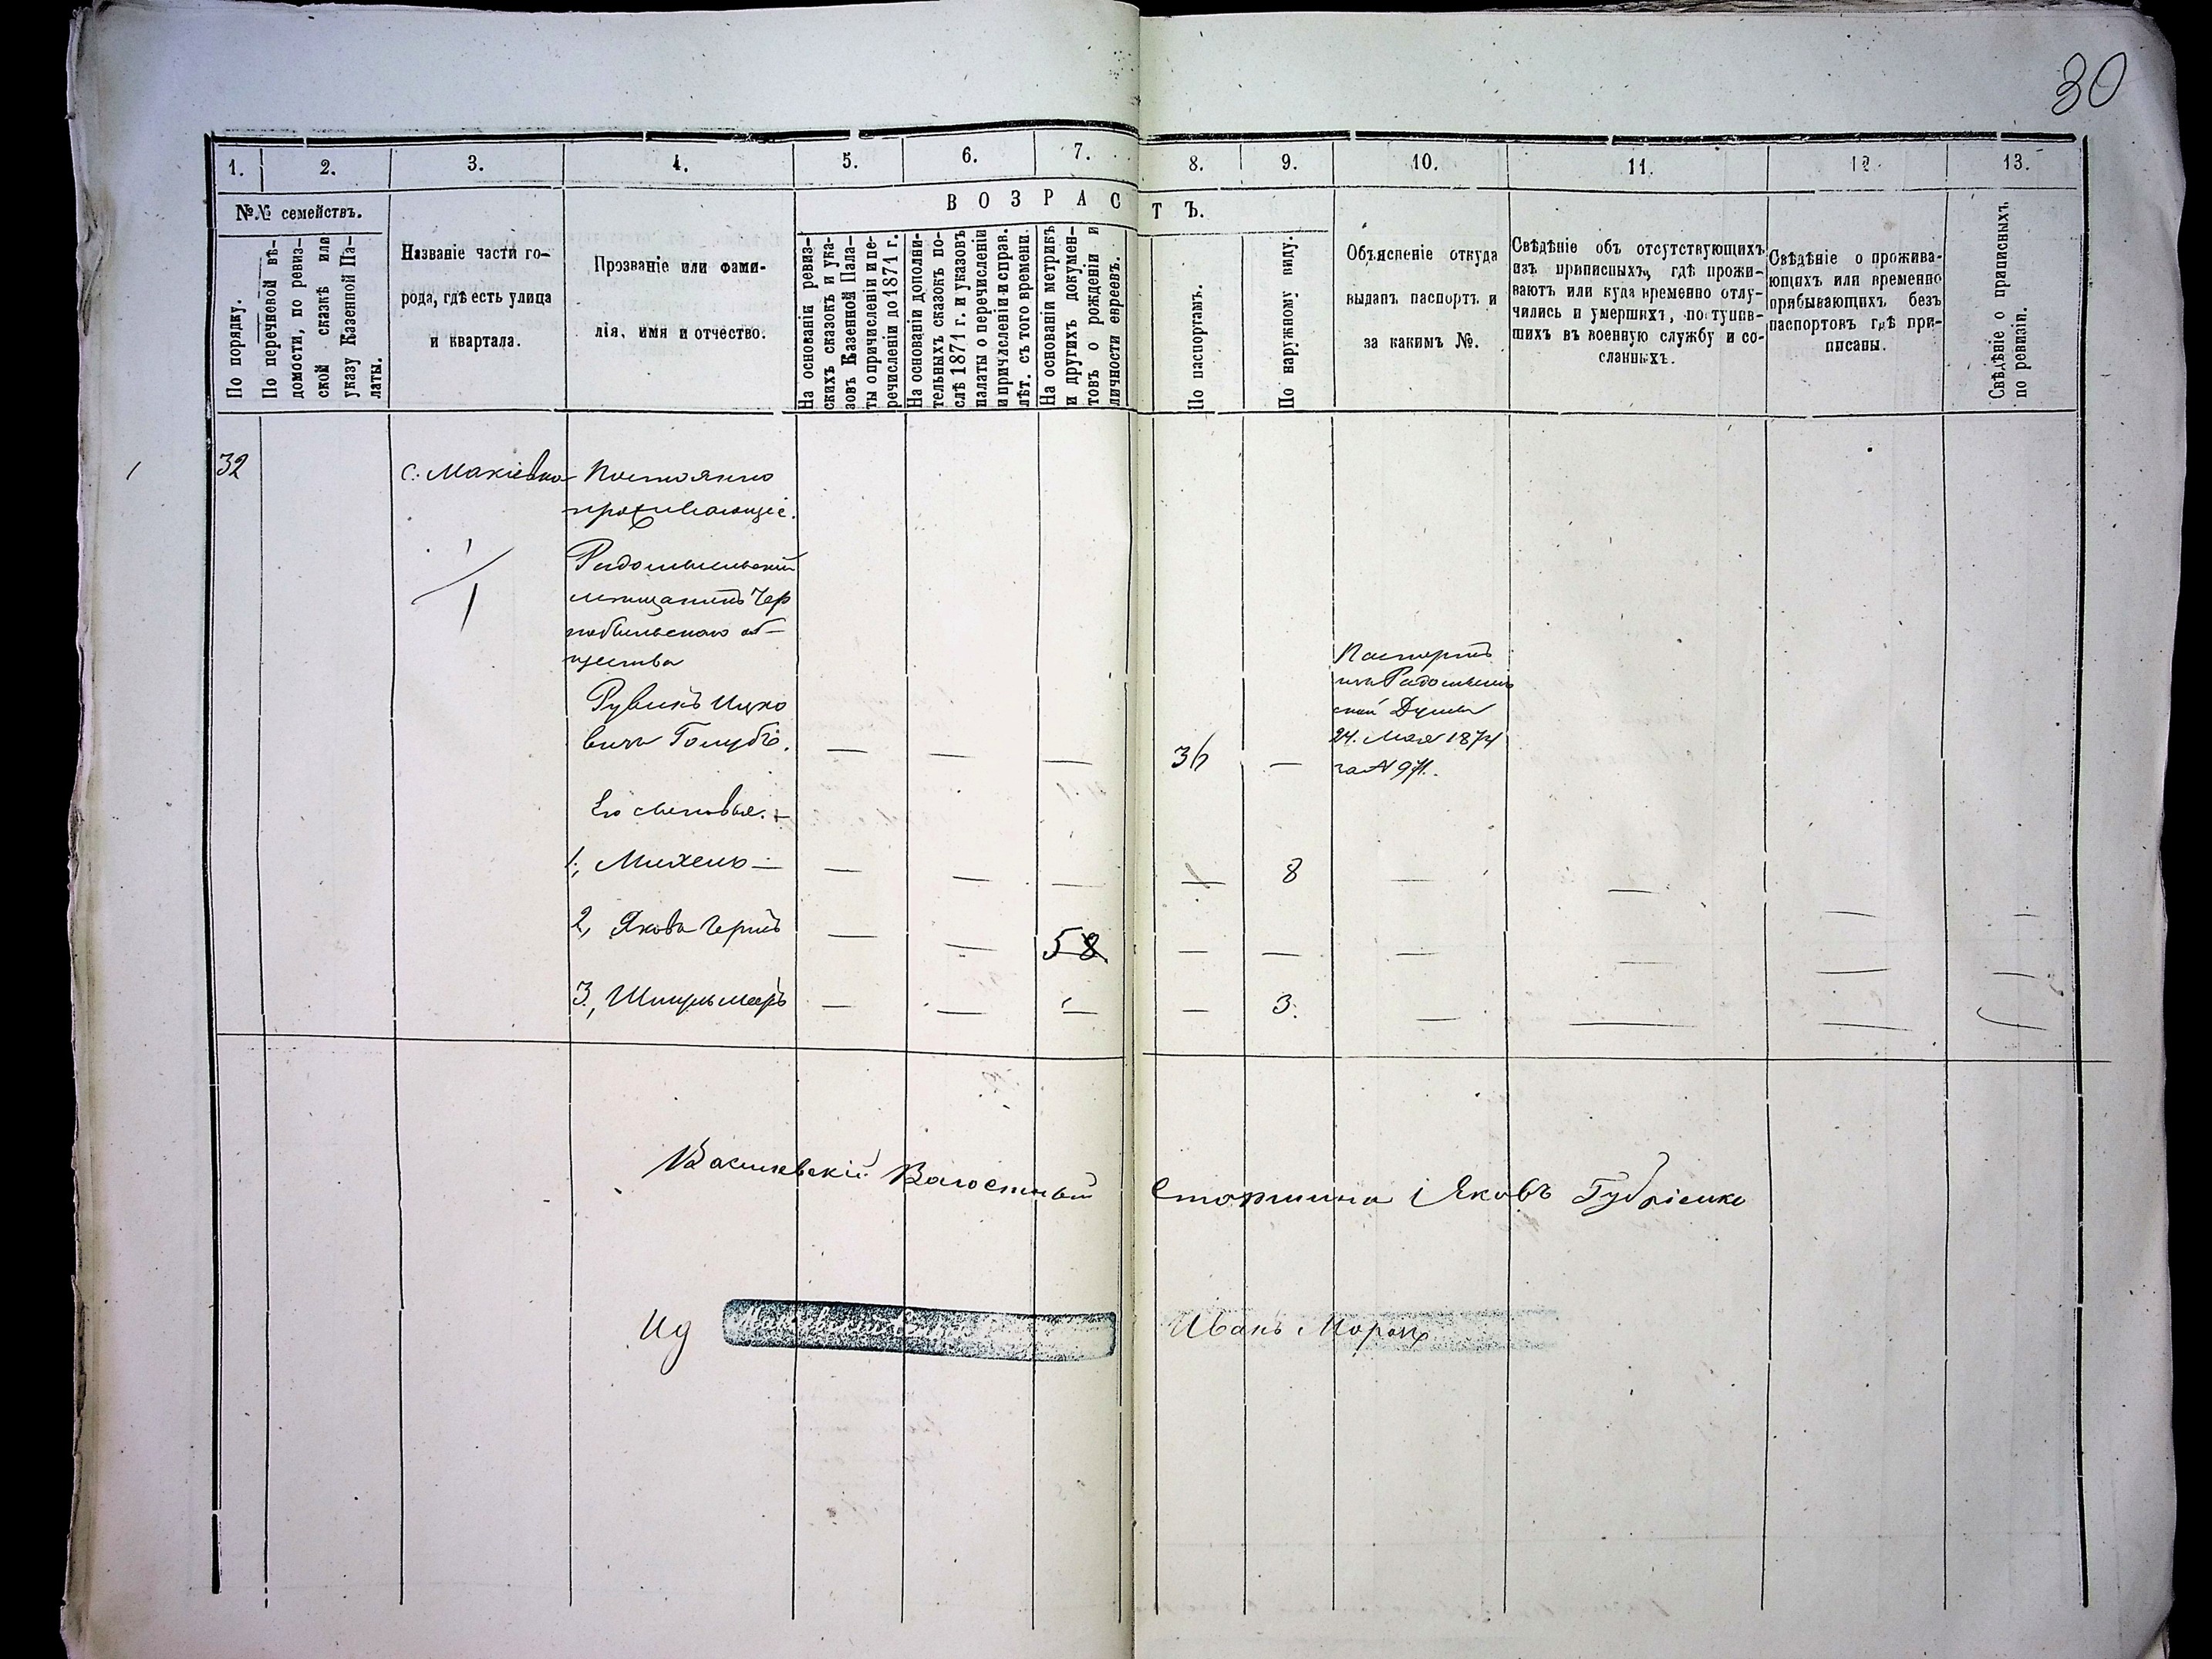 30
1.
2.
3.
4.
5.
6.
7.
8.
9.
10.
11.
12
13.
№№ семействъ.
По порядку.
По перечневой вѣ-
домости, по ревиз-
ской сказкѣ или
указу Казенной Па-
латы.
Названіе части го-
рода, гдѣ есть улица
и квартала.
Прозваніе или фами-
лія, имя и отчество.
ВОЗРАСТЪ.
На основаніи ревиз-
скихъ сказокъ и ука-
зовъ Казенной Пала-
ты о причисленіи и пе-
речисленіи до 1871 г.
На основаніи дополни-
тельныхъ сказокъ по-
слѣ 1871 г. и указовъ
палаты о перечисленіи
и причисленіи и справ.
лѣт. съ того времени.
На основаніи метрикъ
и другихъ докумен-
товъ о рожденіи и
личности евреевъ.
По паспортамъ.
По наружному виду.
Объясненіе откуда
выданъ паспортъ и
за какимъ №.
Свѣдѣніе объ отсутствующихъ
изъ приписныхъ, гдѣ прожи-
ваютъ или куда временно отлу-
чились и умершихъ, поступив-
шихъ въ военную службу и со-
сланныхъ.
Свѣдѣніе о прожива-
ющихъ или временно
прибывающихъ безъ
паспортовъ гдѣ при-
писаны.
Свѣдѣніе о приписныхъ
по ревизіи.
32
с. Макіевка
Постоянно
проживающіе.
Радомысльскій
мѣщанинъ Чер
нобыльскаго об-
щества
Рувинъ Ицко
вичъ Голубъ. — — — 36 —
Паспортъ
изъ Радомысль
ской Думы
24. Мая 1874
за № 971.
Его сыновья. —
1, Михель — — — — — 8 — — — —
2, — — 58 — — — — — —
3, — — — — 3. — — — —
Волостный Старшина Яковъ
Ид
Иванъ